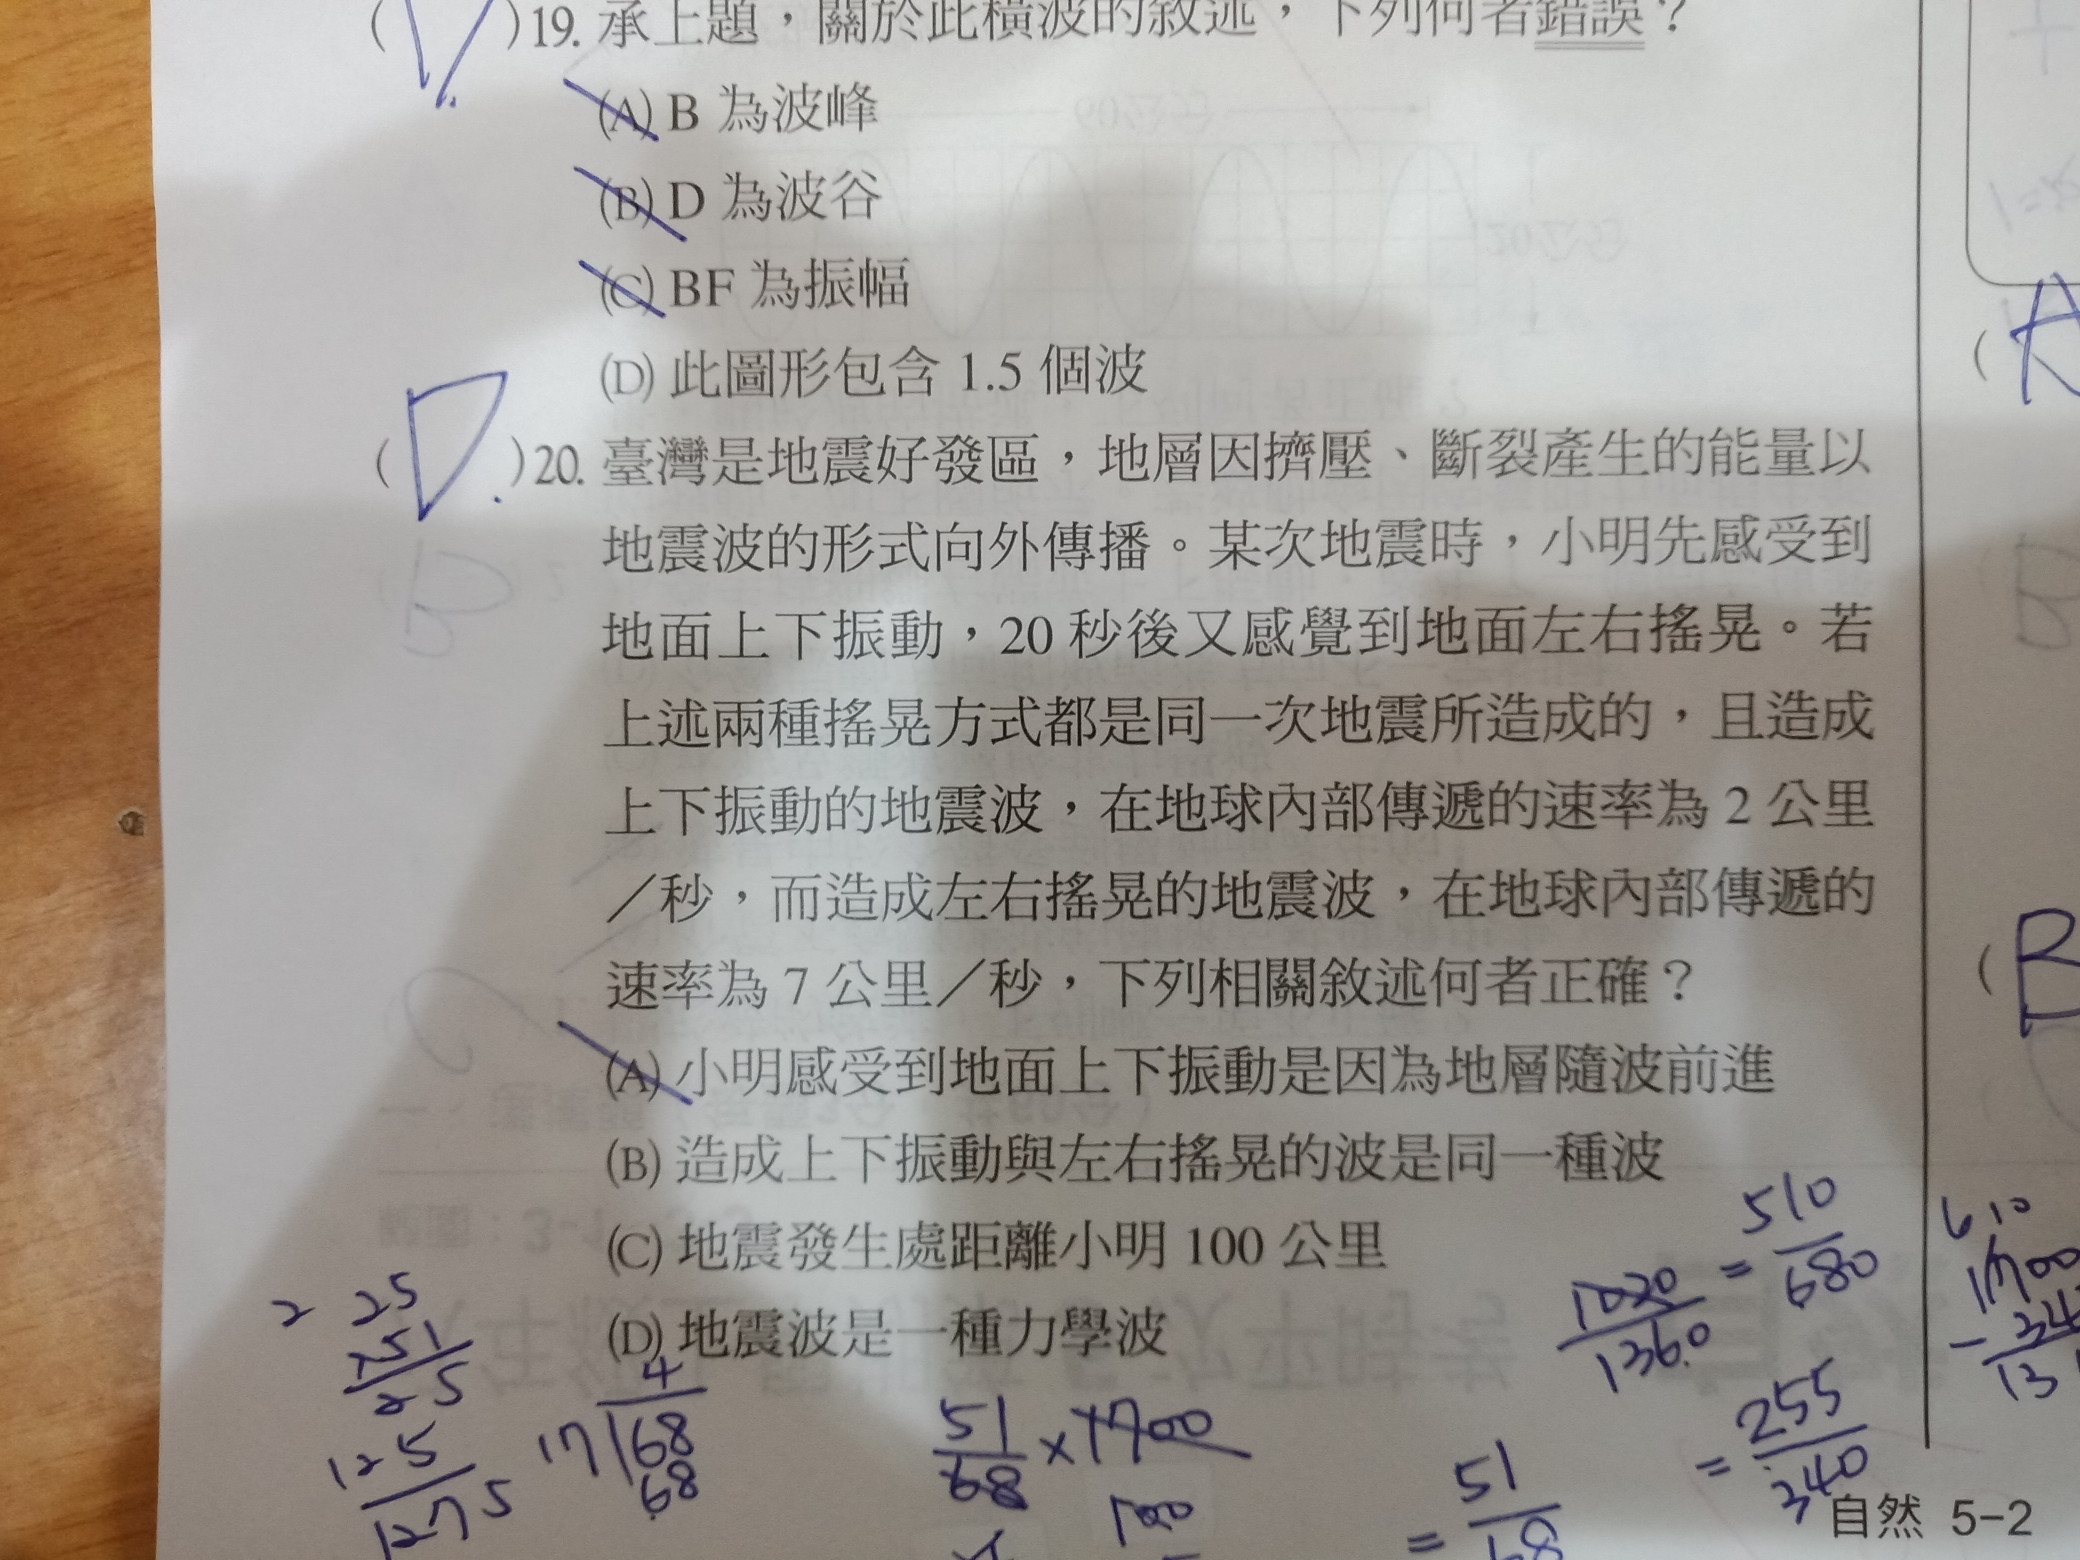 (D)19. 承上題，關於此橫波的敘述，下列何者錯誤？
(A) B 為波峰
(B) D 為波谷
(C) BF 為振幅
(D) 此圖形包含 1.5 個波
(D.)20. 臺灣是地震好發區，地層因擠壓、斷裂產生的能量以
地震波的形式向外傳播。某次地震時，小明先感受到
地面上下振動，20 秒後又感覺到地面左右搖晃。若
上述兩種搖晃方式都是同一次地震所造成的，且造成
上下振動的地震波，在地球內部傳遞的速率為 2 公里
／秒，而造成左右搖晃的地震波，在地球內部傳遞的
速率為 7 公里／秒，下列相關敘述何者正確？
(A) 小明感受到地面上下振動是因為地層隨波前進
(B) 造成上下振動與左右搖晃的波是同一種波
(C) 地震發生處距離小明 100 公里
(D) 地震波是一種力學波
2 25
25
125
1275
4
17 168
68
51
68 × 1700
100
1020
1360 = 510
680
= 255
340
= 51
68
610
1700
A
B
自然 5-2